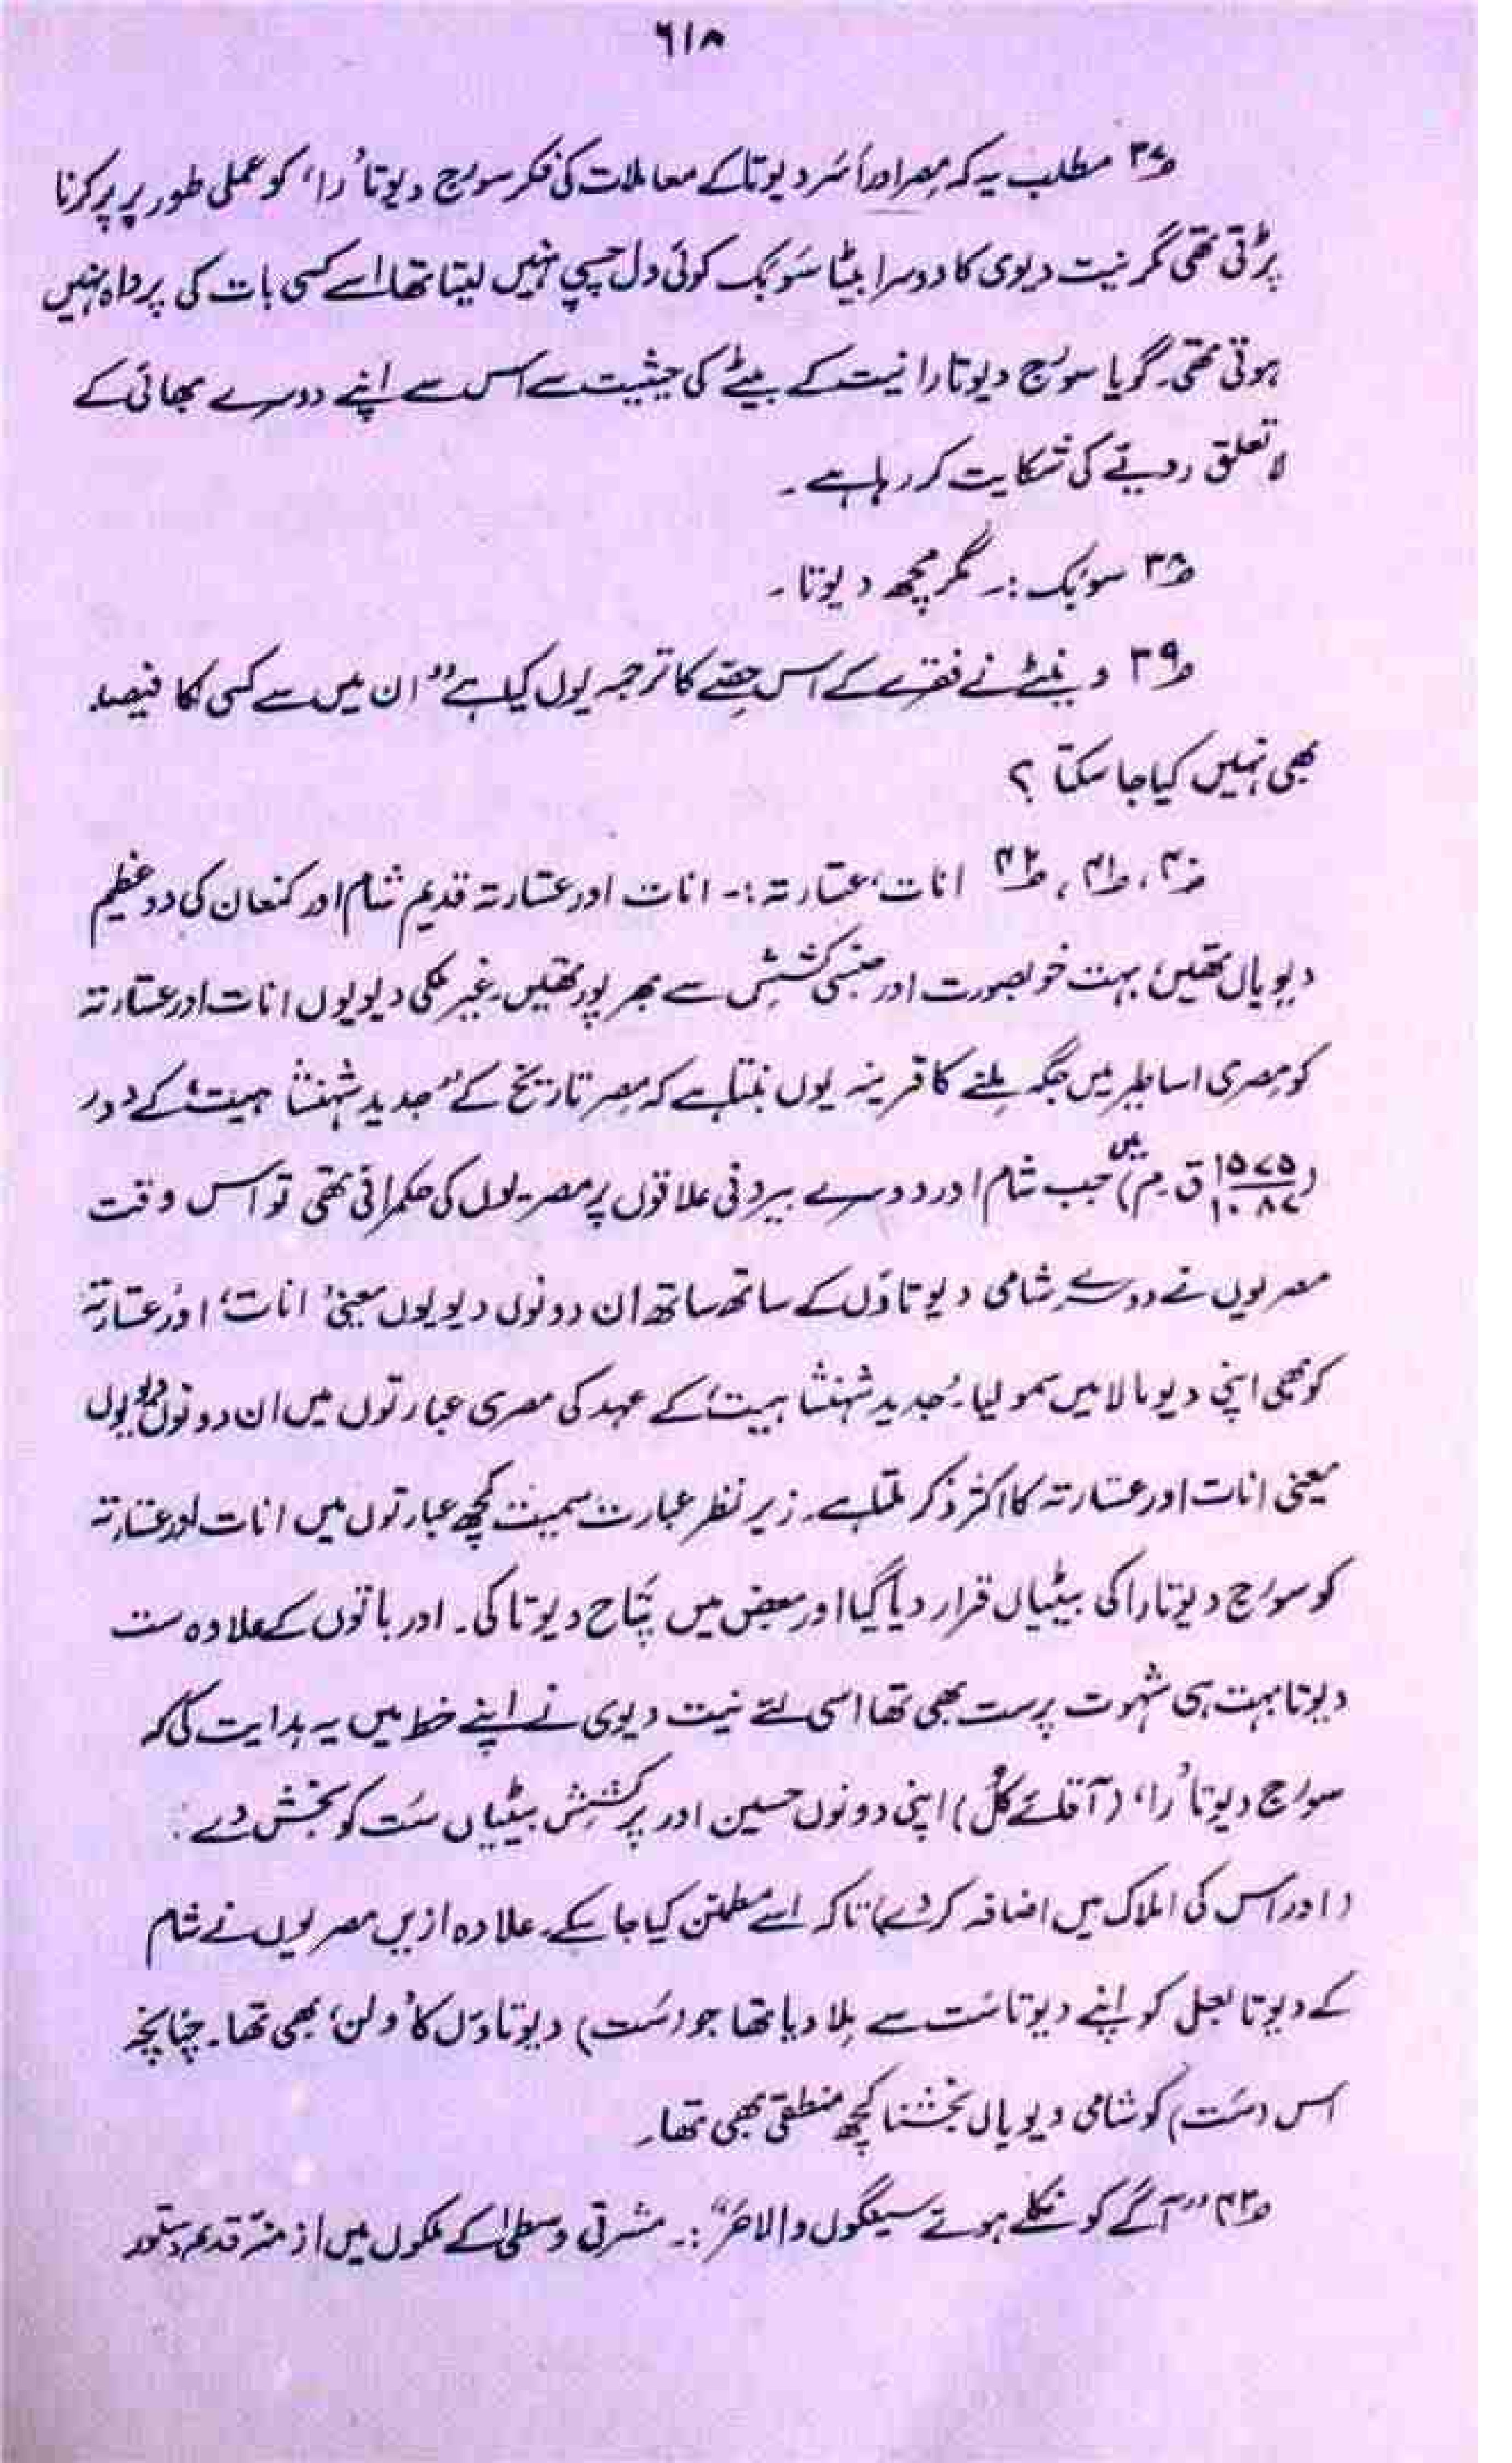 ۶۱۸
۳۷؎ مطلب یہ کہ مصر اور اُسَر دیوتا کے معاملات کی فکر سورج دیوتا ’را‘ کو عملی طور پر پر کرنا
پڑتی تھی مگر نیت دیوی کا دوسرا بیٹا سَوبک کوئی دل چسپی نہیں لیتا تھا اسے کسی بات کی پرواہ نہیں
ہوتی تھی۔ گویا سورج دیوتا را نیت کے بیٹے کی حیثیت سے اس سے اپنے دوسرے بھائی کے
لا تعلق رویّے کی شکایت کر رہا ہے۔
۳۸؎ سوبک :۔ مگرمچھ دیوتا۔
۳۹؎ وینٹے نے فقرے کے اس حِصّے کا ترجمہ یوں کیا ہے ”ان میں سے کسی کا فیصلہ
بھی نہیں کیا جا سکتا ؟
۴۰؎، ۴۱؎، ۴۲؎ انات، عتارتہ :۔ انات اور عتارتہ قدیم شام اور کنعان کی دو عظیم
دیویاں تھیں، بہت خوبصورت اور جنسی کشش سے بھر پور تھیں۔ غیر ملکی دیویوں انات اور عتارتہ
کو مصری اساطیر میں جگہ مِلنے کا قرینہ یوں بنتا ہے کہ مصر تاریخ کے ”جدید شہنشا ہیت“ کے دور
(۱۵۷۵/۱۰۸۷ ق۔م) میں جب شام اور دوسرے بیرونی علاقوں پر مصریوں کی حکمرانی تھی تو اس وقت
مصریوں نے دوسرے شامی دیوتاؤں کے ساتھ ساتھ ان دونوں دیویوں یعنی ’انات‘ اور عتارتہ
کو بھی اپنی دیومالا میں سمو لیا۔ ’جدید شہنشا ہیت‘ کے عہد کی مصری عبارتوں میں ان دونوں دیویوں
یعنی انات اور عتارتہ کا اکثر ذکر ملتا ہے۔ زیر نظر عبارت سمیت کچھ عبارتوں میں انات اور عتارتہ
کو سورج دیوتا را کی بیٹیاں قرار دیا گیا اور بعض میں پتاح دیوتا کی۔ اور باتوں کے علاوہ ست
دیوتا بہت ہی شہوت پرست بھی تھا اسی لئے نیت دیوی نے اپنے خط میں یہ ہدایت کی کہ
سورج دیوتا ’را‘ (آقائے کُل) اپنی دونوں حسین اور پرکشش بیٹیاں سَت کو بخش دے۔
(اور اس کی املاک میں اضافہ کر دے) تاکہ اسے مطمئن کیا جا سکے۔ علاوہ ازیں مصریوں نے شام
کے دیوتا بعل کو اپنے دیوتا سَت سے مِلا دیا تھا جو (سَت) دیوتاؤں کا ’ولن‘ بھی تھا۔ چنانچہ
اس (سَت) کو شامی دیویاں بخشنا کچھ منطقی بھی تھا۔
۴۳؎ ”آگے کو نکلے ہوئے سینگوں والا حَر“ :۔ مشرقی وسطیٰ کے ملکوں میں از منہ قدیم دستور